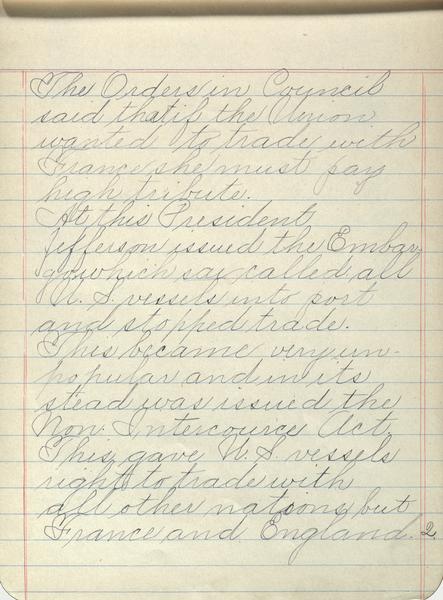 The Orders in Council
said that if the Union
wanted to trade with
France she must pay
high tribute.
At this President
Jefferson issued the Embar-
go which called all
U. S. vessels into port
and stopped trade.
This became very un-
popular and in its
stead was issued the
Non-Intercourse Act.
This gave U. S. vessels
right to trade with
all other nations but
France and England. 2